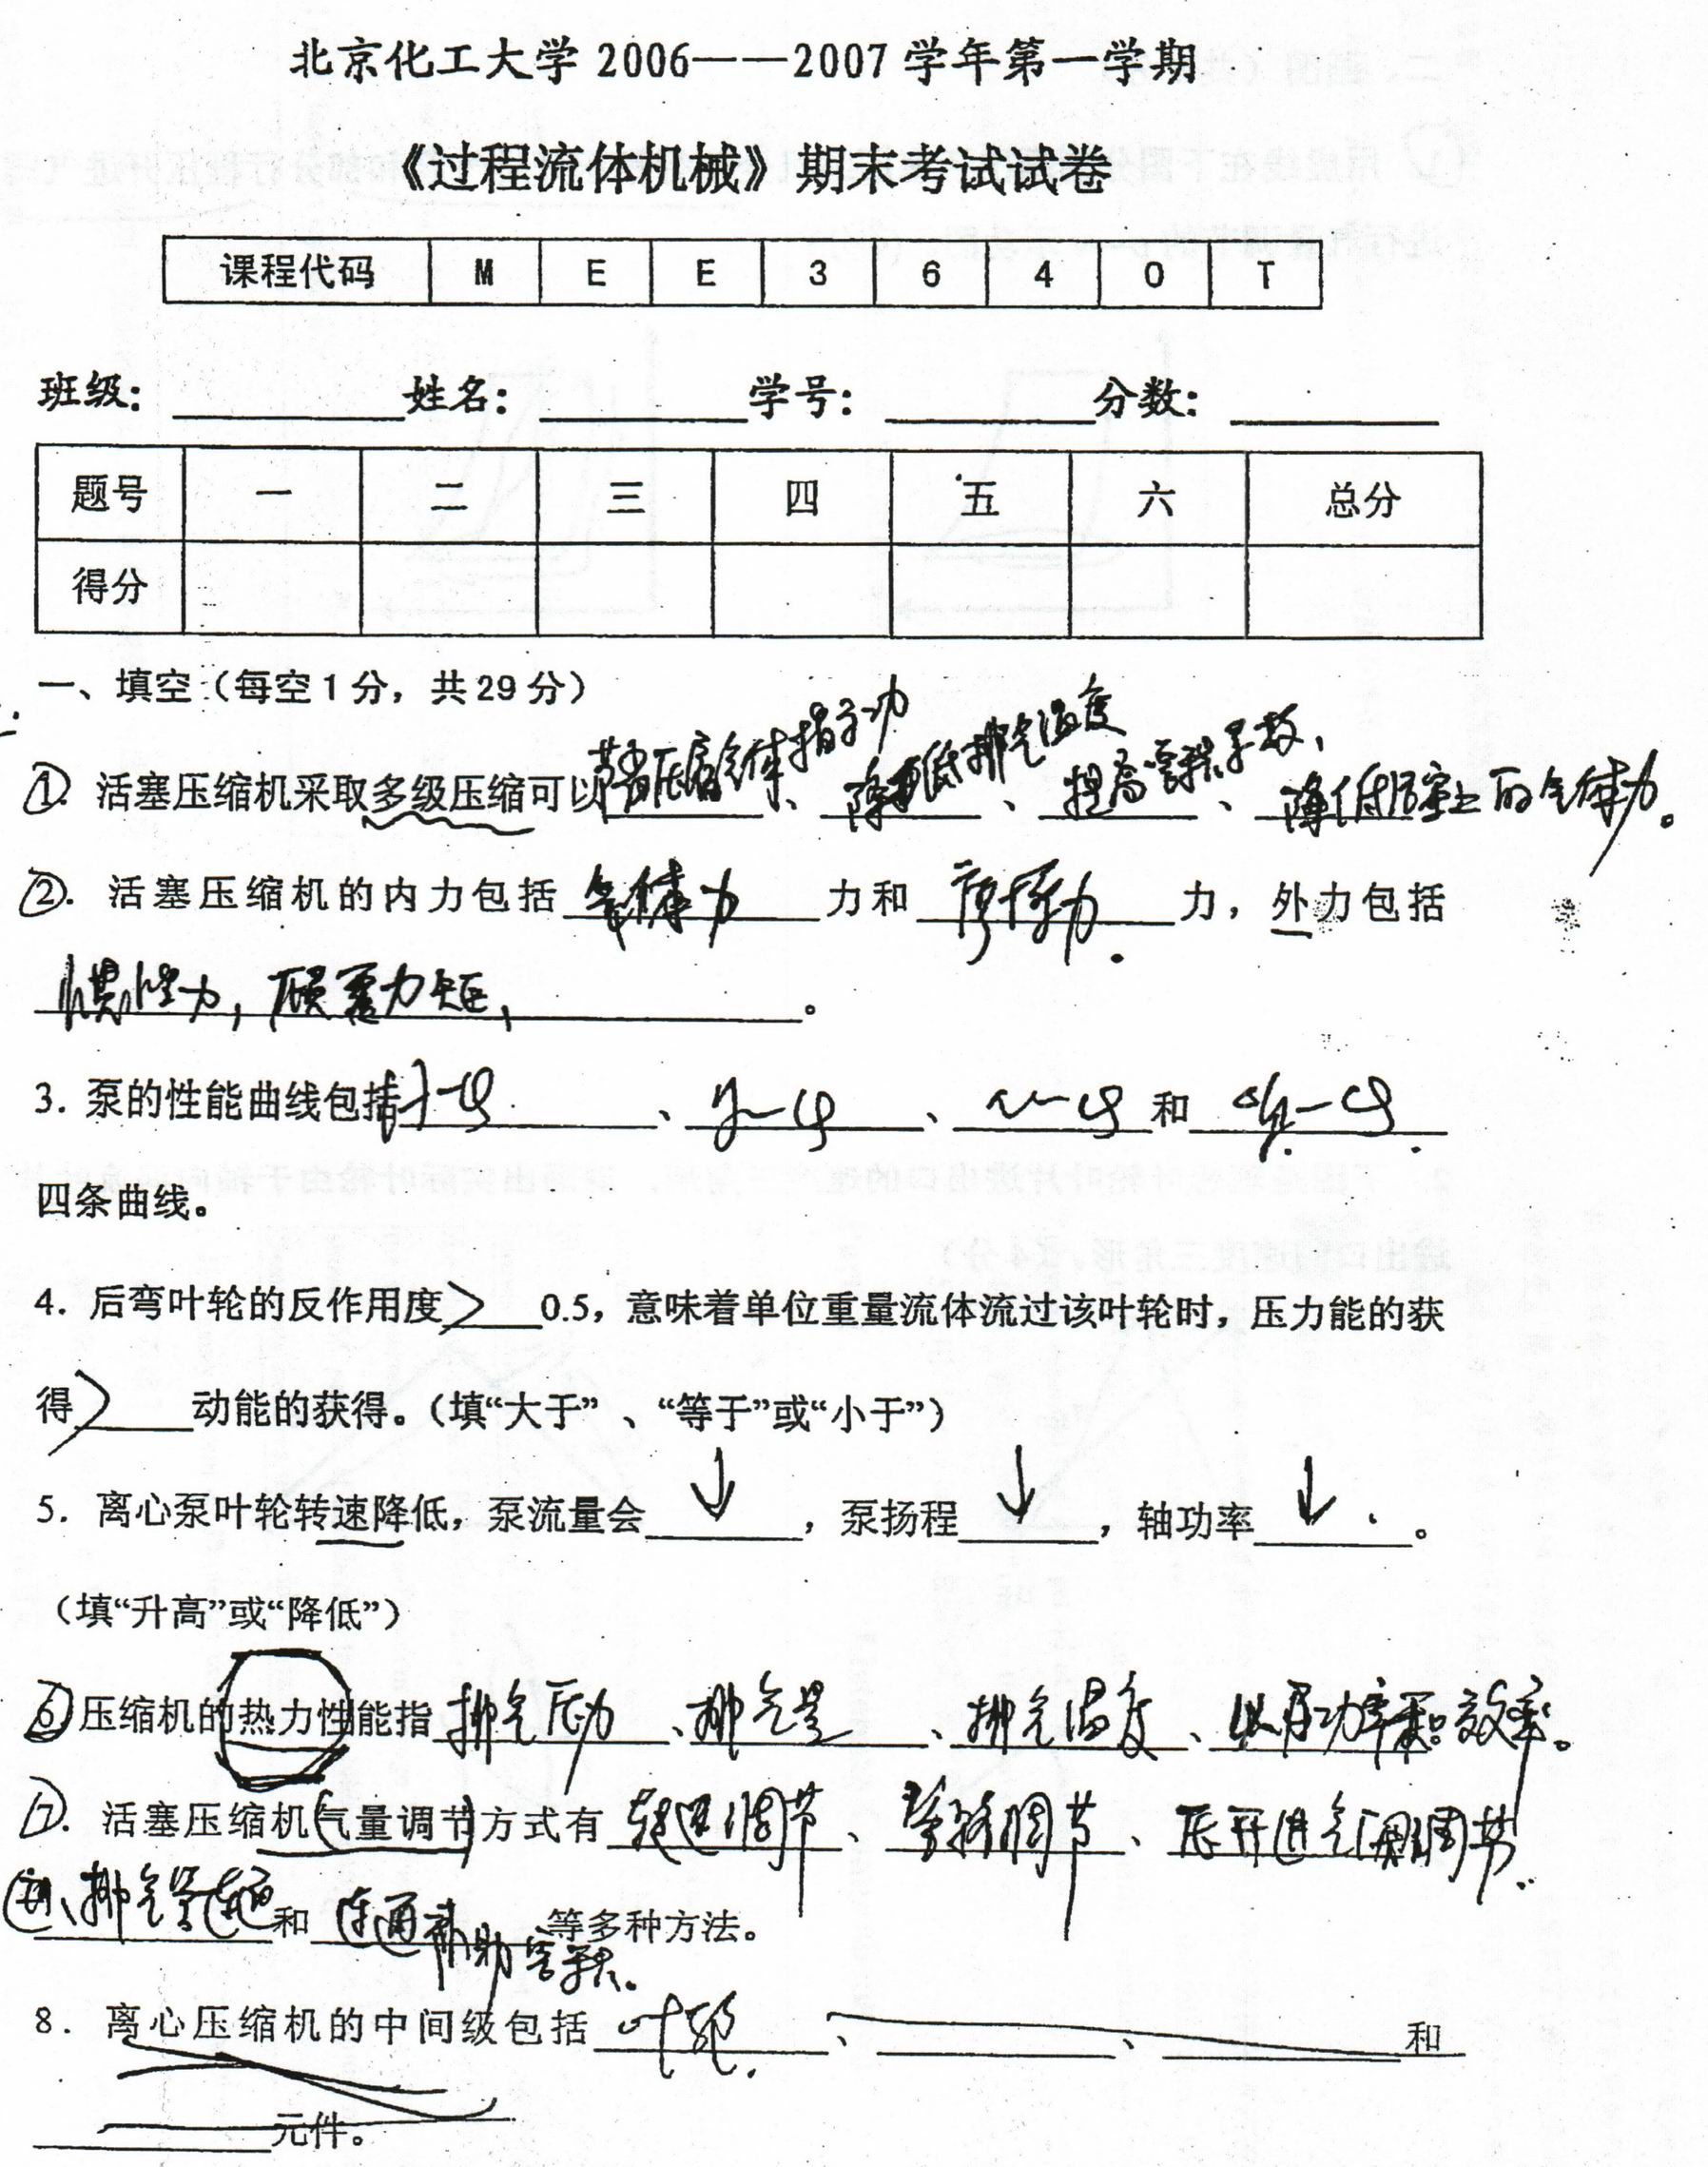 北京化工大学 2006——2007 学年第一学期
《过程流体机械》期末考试试卷
课程代码 M E E 3 6 4 0 T
班级: 姓名: 学号: 分数:
题号 一 二 三 四 五 六 总分
得分
一、填空(每空 1 分,共 29 分)
①. 活塞压缩机采取多级压缩可以节省压缩气体指示功、降低排气温度、提高容积系数、降低活塞上的气体力。
②. 活塞压缩机的内力包括 气体力 力和 摩擦力 力,外力包括
惯性力,倾覆力矩, 。
3. 泵的性能曲线包括 、 、 和
四条曲线。
4. 后弯叶轮的反作用度 > 0.5,意味着单位重量流体流过该叶轮时,压力能的获
得 > 动能的获得。(填“大于”、“等于”或“小于”)
5. 离心泵叶轮转速降低,泵流量会 ↓ ,泵扬程 ↓ ,轴功率 ↓ 。
(填“升高”或“降低”)
⑥压缩机的热力性能指 排气压力 、排气量 、排气温度 、以及功率和效率。
⑦. 活塞压缩机气量调节方式有 转速调节 、管路调节 、压开进气阀调节
进、排气管连通 和 连通补助容积。 等多种方法。
8. 离心压缩机的中间级包括 叶轮. 、 、 和
元件。